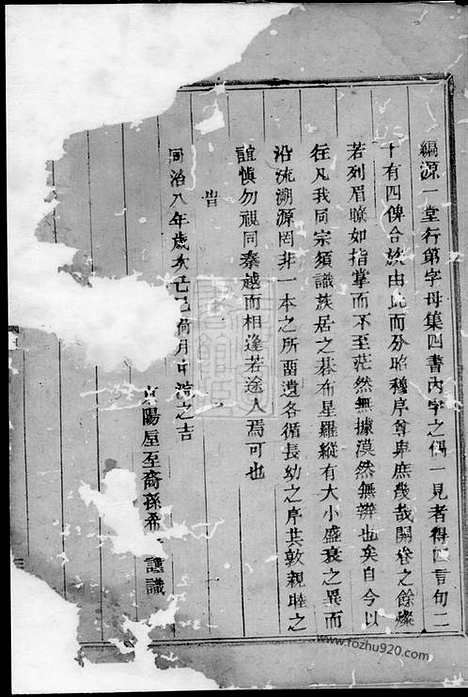 編源一堂行第字母集四書內字之偶一見者得四言句二
十有四俾合族由此而分昭穆序尊卑庶幾哉開卷之餘燦
若列眉瞭如指掌而不至茫然無據漠然無辨也矣自今以
往凡我同宗須識族居之碁布星羅縱有大小盛衰之異而
沿流溯源罔非一本之所留遺各循長幼之序共敦親睦之
誼慎勿視同秦越而相逢若途人焉可也
旹
同治八年歲次己巳荷月中浣之吉
陽屋至裔孫希謹識
www.fozhu920.com